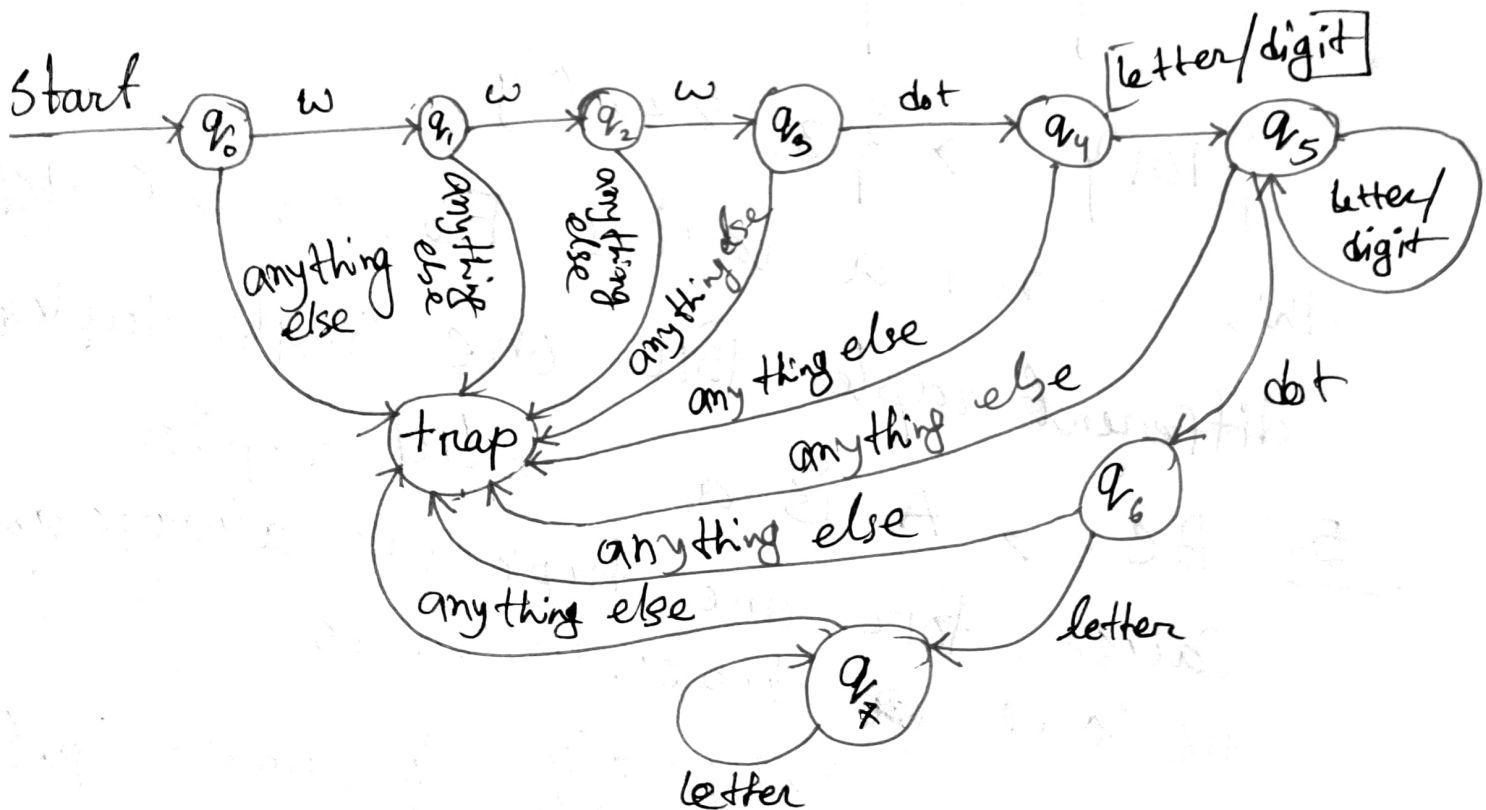 start
w
w
w
dot
letter/digit
q0
q1
q2
q3
q4
q5
letter/
digit
anything
else
anything
else
anything
else
anything else
anything else
anything else
dot
trap
q6
anything else
anything else
letter
q7
letter